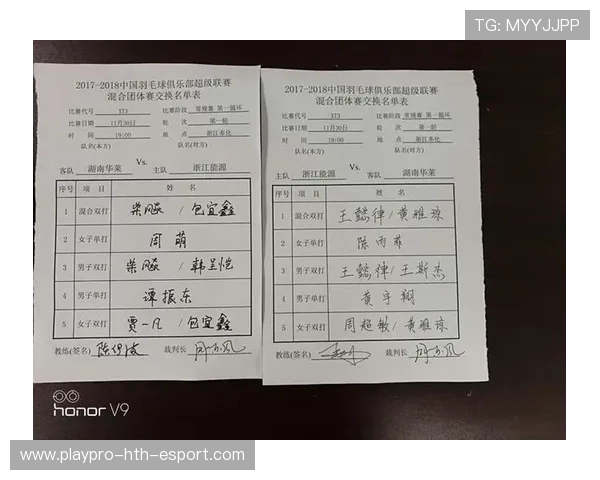 TG: MYYJJPP
2017-2018中国羽毛球俱乐部超级联赛
混合团体赛交换名单表
比赛代号 XT3 比赛阶段 常规赛 第一循环
比赛日期 11月30日 轮 次 第一轮
时 间 19:00 地 点 浙江奉化
队名(本方) 队名(对方)
Vs.
客队 湖南华莱 主队 浙江能源
序号 项 目 姓 名
1 混合双打 柴飚 / 包宜鑫
2 女子单打 周萌
3 男子双打 柴飚 / 韩呈恺
4 男子单打 谭振东
5 女子双打 贾一凡 / 包宜鑫
教练(签名) 裁判长
2017-2018中国羽毛球俱乐部超级联赛
混合团体赛交换名单表
比赛代号 XT3 比赛阶段 常规赛 第一循环
比赛日期 11月30日 轮 次 第一轮
时 间 19:00 地 点 浙江奉化
队名(本方) 队名(对方)
Vs.
主队 浙江能源 客队 湖南华莱
序号 项 目 姓 名
1 混合双打 王懿律 / 黄雅琼
2 女子单打 陈雨菲
3 男子双打 王懿律 / 王斯杰
4 男子单打 黄宇翔
5 女子双打 周超敏 / 黄雅琼
教练(签名) 裁判长
honor V9
www.playpro-hth-esport.com